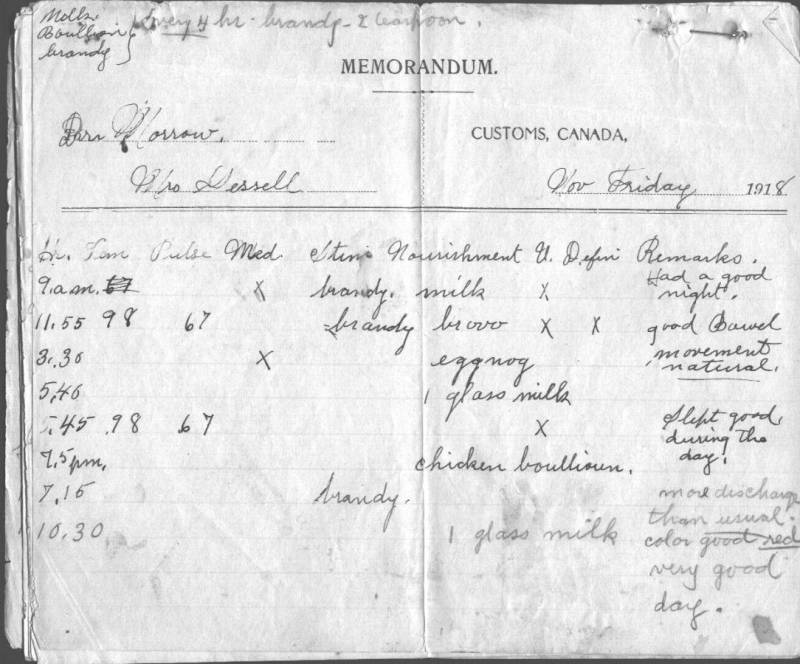 Every 4 hr - brandy - 2 teaspoon.
Boullion
brandy
MEMORANDUM.
Morrow.
CUSTOMS, CANADA,
Mrs Dessell
Nov Friday 1918
Hr. Tem Pulse Med. Stim Nourishment U. Defin Remarks.
9.a.m. 67 X brandy. milk X Had a good
night.
11.55 98 67 brandy brovo X X good Bowel
3.30 X eggnog movement
natural.
5,40 1 glass milk
5.45 98 67 X Slept good
during the
day.
7.5pm, chicken boullioun.
7.15 brandy. more discharge
than usual.
10.30 1 glass milk color good red
very good
day.